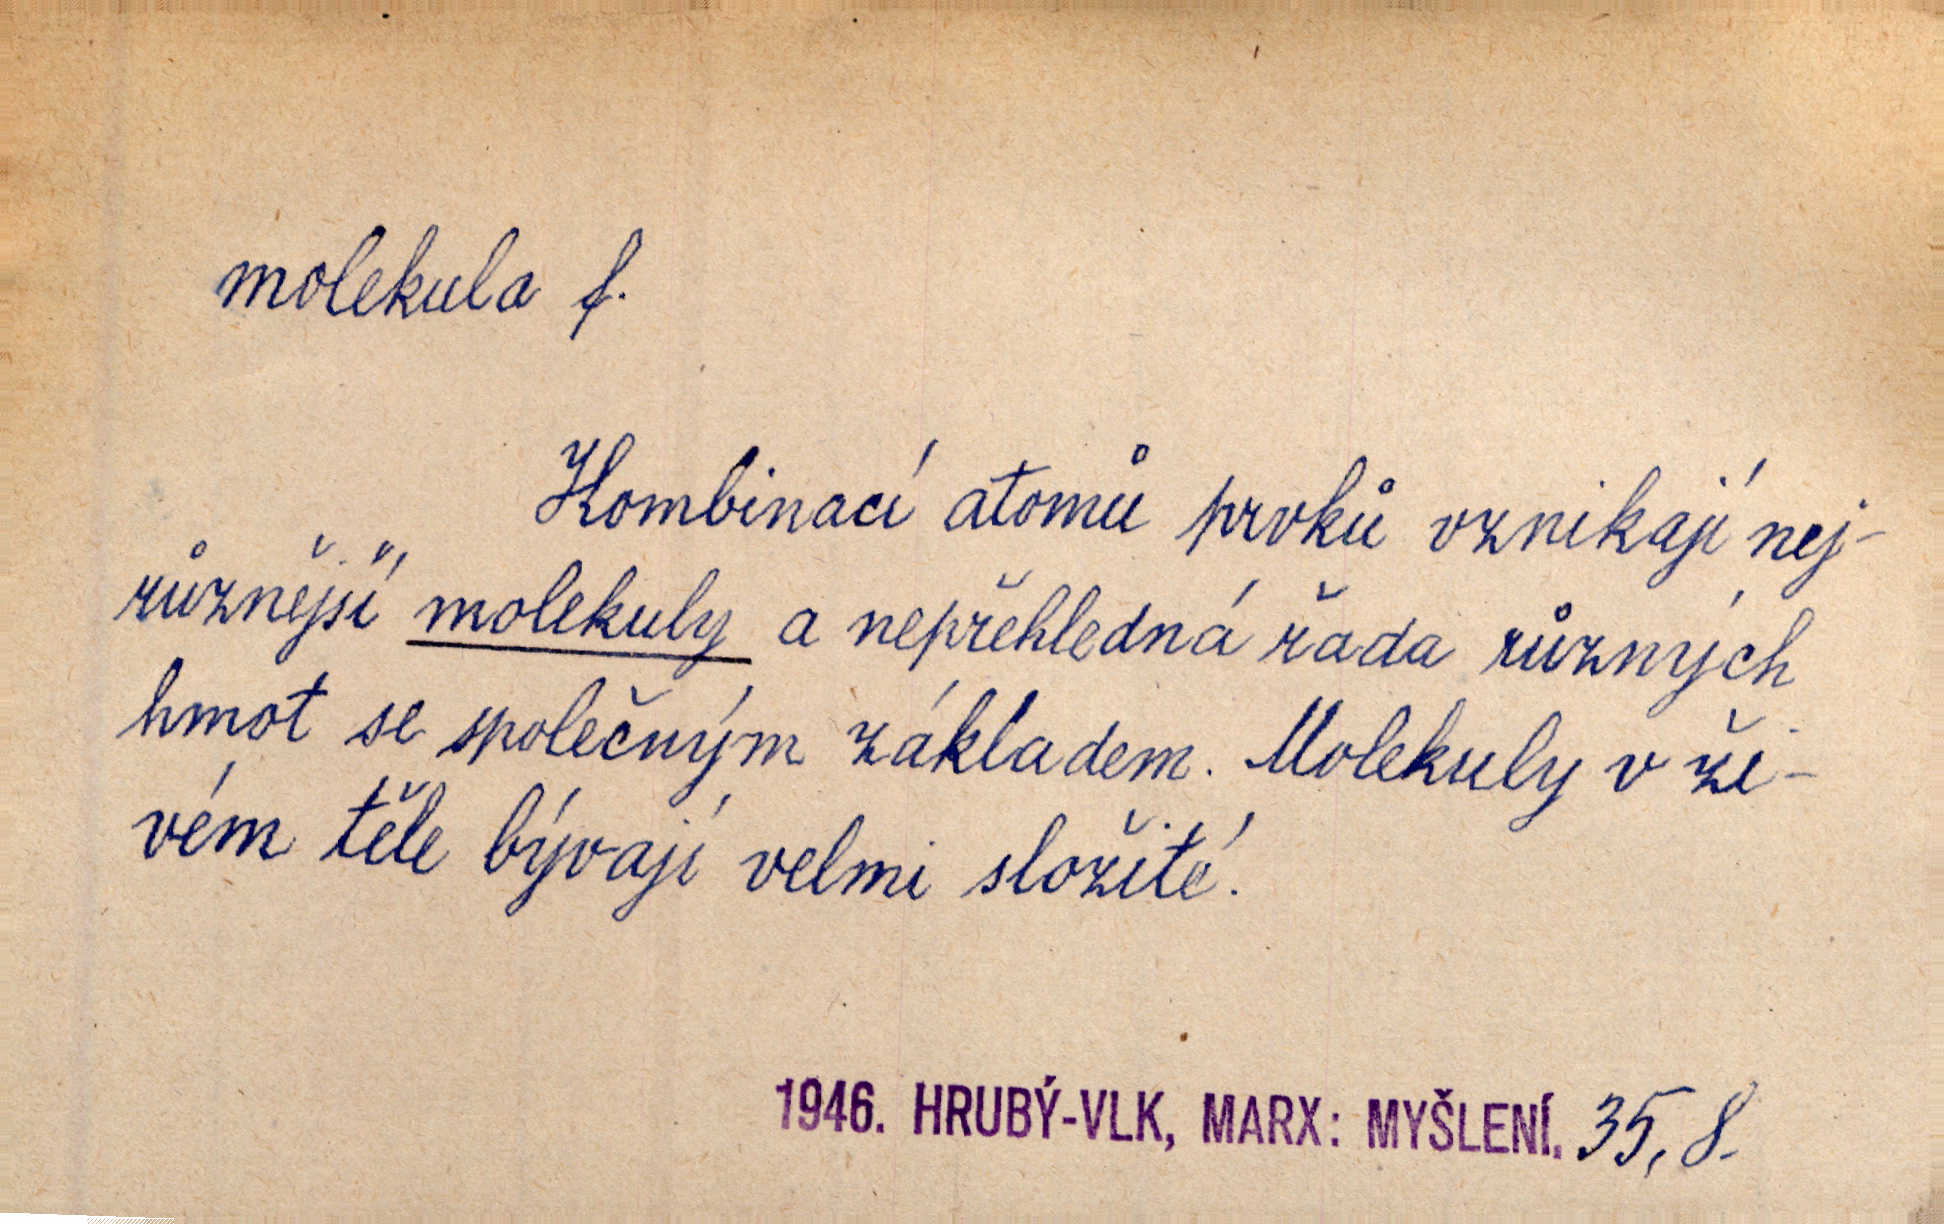 molekula f.
Kombinací atomů prvků vznikají nej-
různější molekuly a nepřehledná řada různých
hmot se společným základem. Molekuly v ži-
vém těle bývají velmi složité.
1946. HRUBÝ-VLK, MARX: MYŠLENÍ. 35, 8.